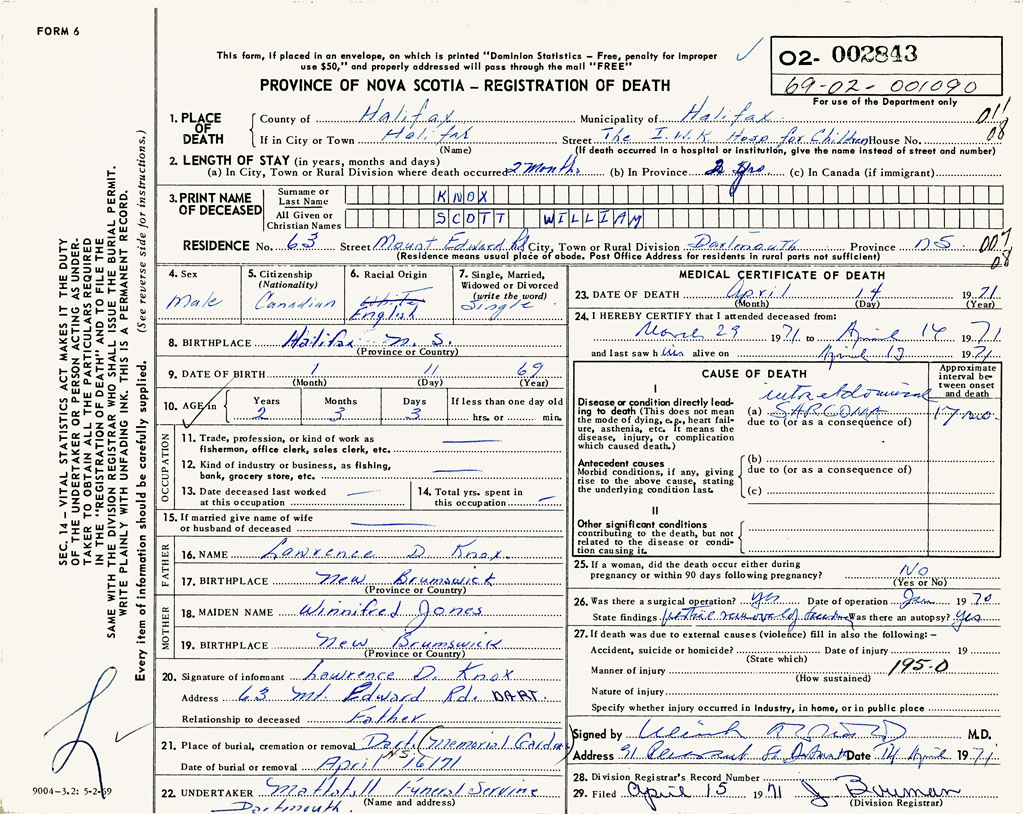 FORM 6
This form, if placed in an envelope, on which is printed "Dominion Statistics - Free, penalty for improper
use $50," and properly addressed will pass through the mail "FREE"
PROVINCE OF NOVA SCOTIA - REGISTRATION OF DEATH
02- 002843
69-02- 001090
For use of the Department only
1. PLACE OF DEATH
County of Halifax Municipality of Halifax 011
If in City or Town Halifax Street The I.W.K Hosp for Children House No. 08
(Name) (If death occurred in a hospital or institution, give the name instead of street and number)
2. LENGTH OF STAY (in years, months and days)
(a) In City, Town or Rural Division where death occurred 2 Months (b) In Province 2 yrs (c) In Canada (if immigrant)
3. PRINT NAME OF DECEASED
Surname or Last Name KNOX
All Given or Christian Names SCOTT WILLIAM
RESIDENCE No. 63 Street Mount Edward Rd City, Town or Rural Division Dartmouth Province N.S. 007
(Residence means usual place of abode. Post Office Address for residents in rural parts not sufficient) 08
4. Sex
Male
5. Citizenship
(Nationality)
Canadian
6. Racial Origin
White
English
7. Single, Married,
Widowed or Divorced
(write the word)
Single
8. BIRTHPLACE Halifax N.S.
(Province or Country)
9. DATE OF BIRTH 1 11 69
(Month) (Day) (Year)
10. AGE in
Years 2
Months 3
Days 3
If less than one day old
hrs. or min.
OCCUPATION
11. Trade, profession, or kind of work as
fisherman, office clerk, sales clerk, etc.
12. Kind of industry or business, as fishing,
bank, grocery store, etc.
13. Date deceased last worked
at this occupation
14. Total yrs. spent in
this occupation
15. If married give name of wife
or husband of deceased
FATHER
16. NAME Lawrence D. Knox.
17. BIRTHPLACE New Brunswick
(Province or Country)
MOTHER
18. MAIDEN NAME Winnifred Jones
19. BIRTHPLACE New Brunswick
(Province or Country)
20. Signature of informant Lawrence D. Knox
Address 63 Mt. Edward Rd. DART.
Relationship to deceased Father
21. Place of burial, cremation or removal Dart. Memorial Gardens
N.S.
Date of burial or removal April 16/71
22. UNDERTAKER Funeral Service
(Name and address)
Dartmouth.
MEDICAL CERTIFICATE OF DEATH
23. DATE OF DEATH April 14 1971
(Month) (Day) (Year)
24. I HEREBY CERTIFY that I attended deceased from:
March 29 1971 to April 14 1971
and last saw him alive on April 13 1971
CAUSE OF DEATH
Approximate
interval be-
tween onset
and death
I
Disease or condition directly lead-
ing to death (This does not mean
the mode of dying, e.g., heart fail-
ure, asthenia, etc. It means the
disease, injury, or complication
which caused death.)
intraabdominal
(a) SARCOMA 17 mo.
due to (or as a consequence of)
Antecedent causes
Morbid conditions, if any, giving
rise to the above cause, stating
the underlying condition last.
(b)
due to (or as a consequence of)
(c)
II
Other significant conditions
contributing to the death, but not
related to the disease or condi-
tion causing it.
25. If a woman, did the death occur either during
pregnancy or within 90 days following pregnancy? No
(Yes or No)
26. Was there a surgical operation? Yes Date of operation Jan 1970
State findings partial removal of tumor Was there an autopsy? Yes
27. If death was due to external causes (violence) fill in also the following: -
Accident, suicide or homicide? Date of injury 19
(State which)
Manner of injury 195.0
(How sustained)
Nature of injury
Specify whether injury occurred in industry, in home, or in public place
Signed by M.D.
Address 91 St Dartmouth Date 14 April 1971
28. Division Registrar's Record Number
29. Filed April 15 1971 J. Bowman
(Division Registrar)
SEC. 14 - VITAL STATISTICS ACT MAKES IT THE DUTY
OF THE UNDERTAKER OR PERSON ACTING AS UNDER-
TAKER TO OBTAIN ALL THE PARTICULARS REQUIRED
IN THE "REGISTRATION OF DEATH" AND TO FILE THE
SAME WITH THE DIVISION REGISTRAR WHO SHALL ISSUE THE BURIAL PERMIT.
WRITE PLAINLY WITH UNFADING INK. THIS IS A PERMANENT RECORD.
Every item of information should be carefully supplied. (See reverse side for instructions.)
9004-3.2: 5-2-69